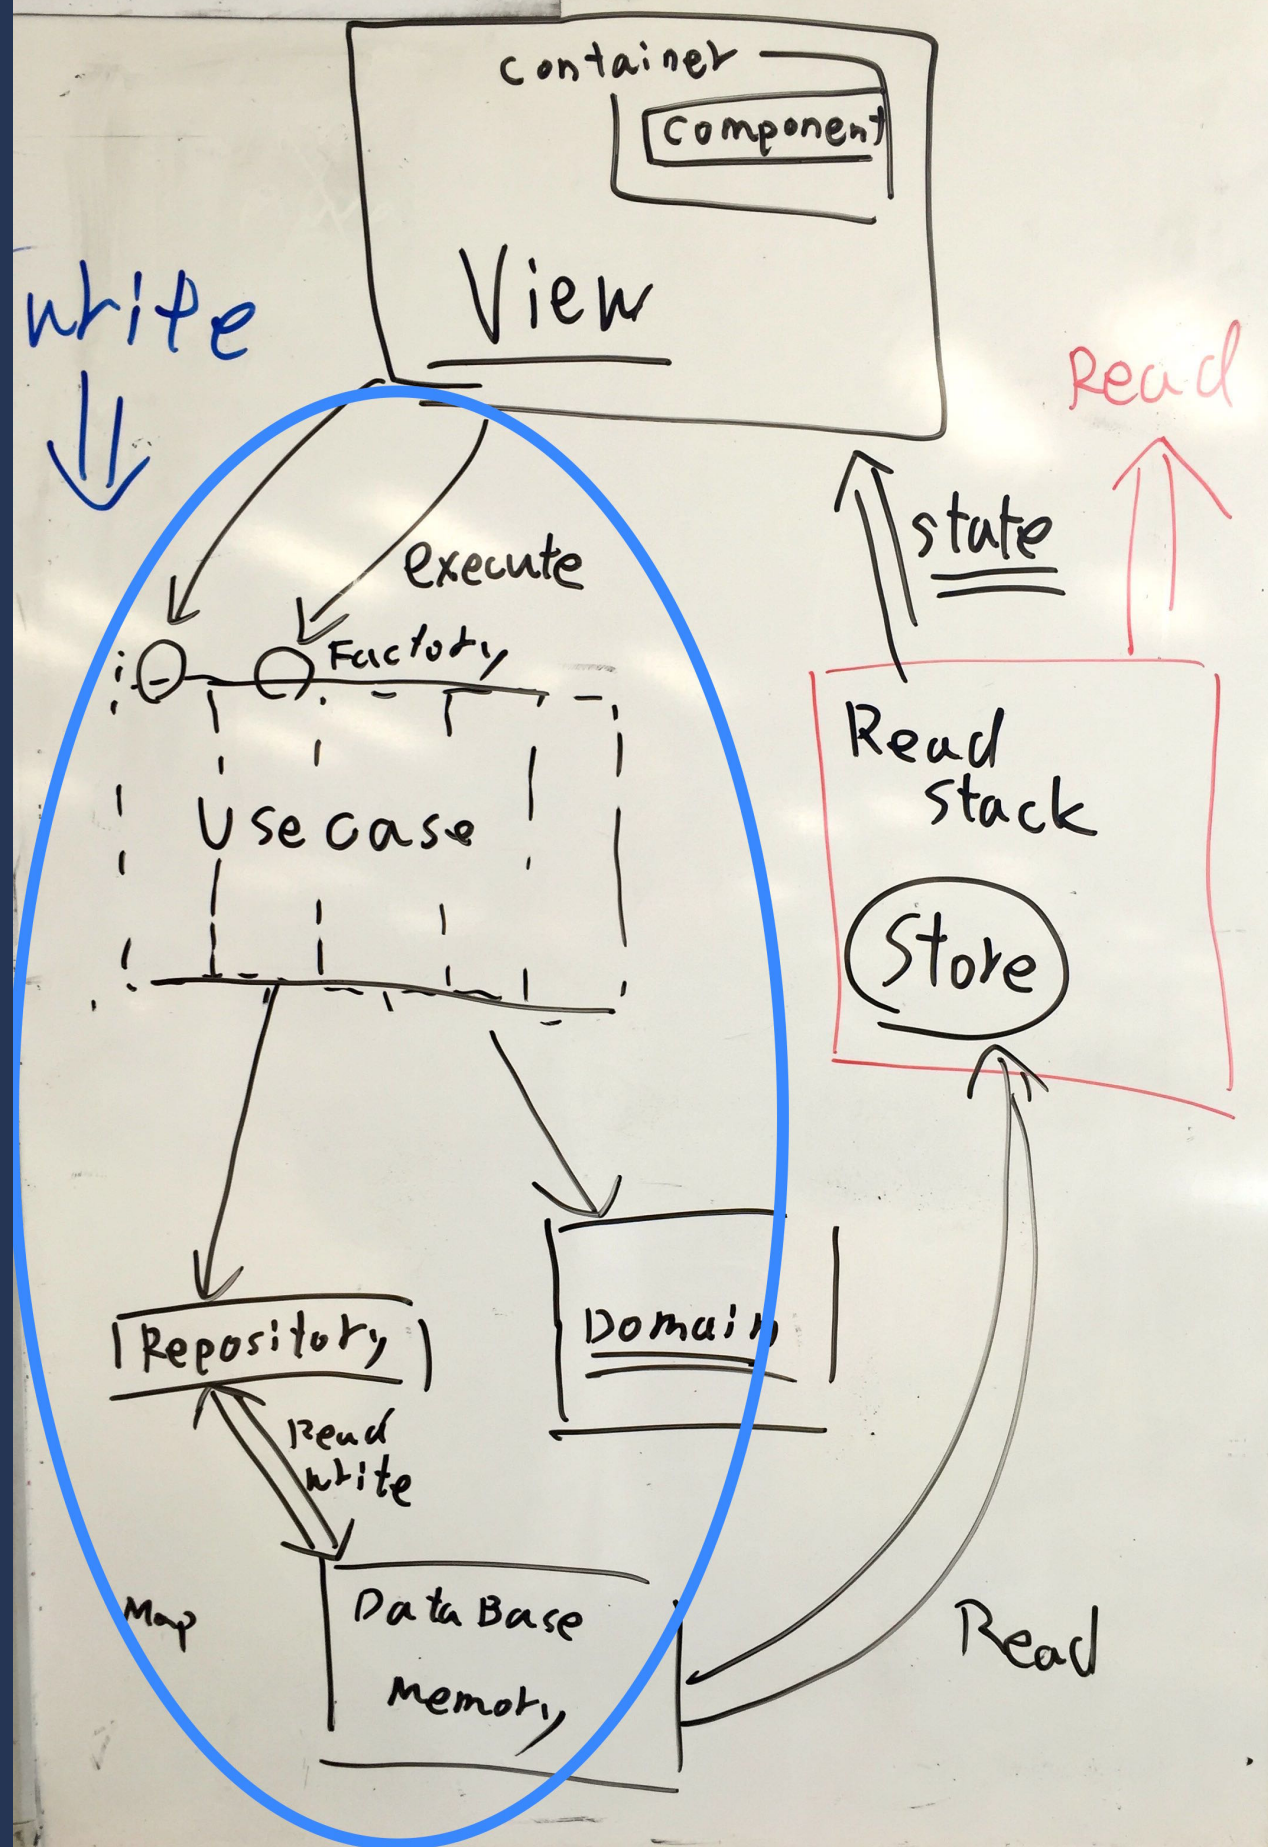 container
component
View
write
Read
state
execute
Factory
Usecase
Read
stack
Store
Repository
Domain
Read
write
Map
DataBase
Memory
Read